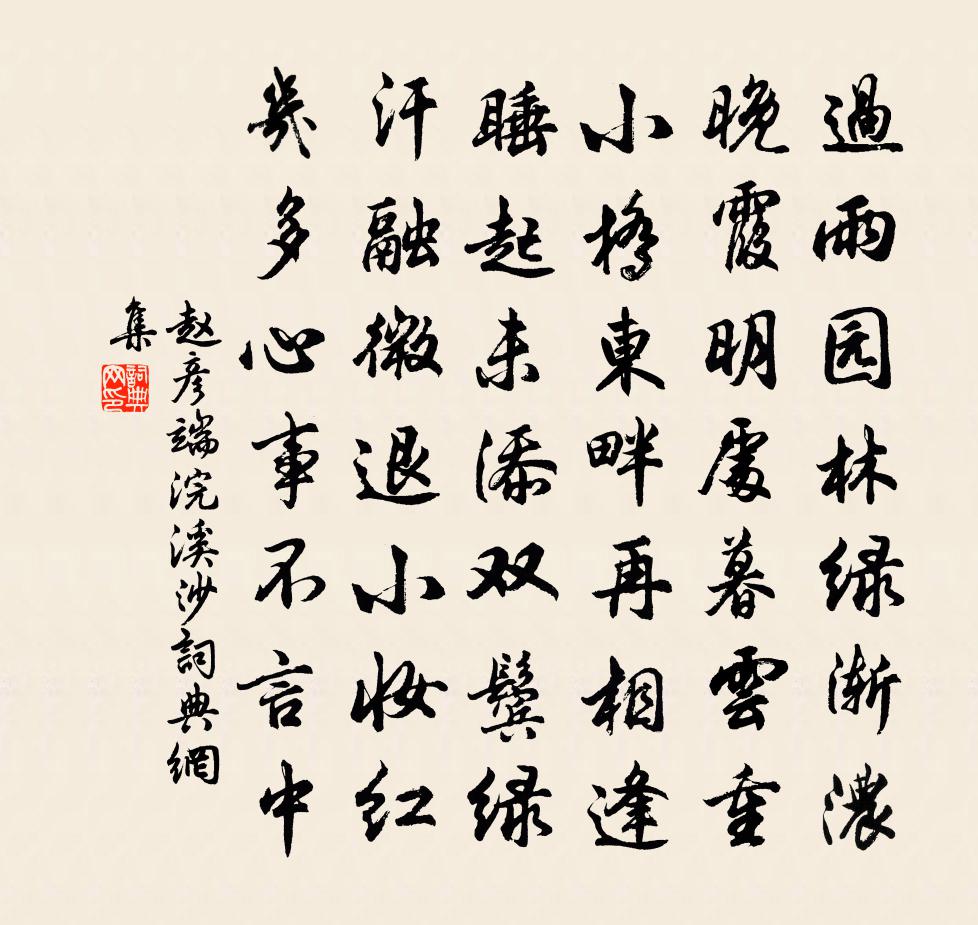 過雨园林绿渐濃
晚霞明處暮雲重
小橋東畔再相逢
睡起未添双鬓绿
汗融微退小妆红
幾多心事不言中
赵彦端浣溪沙詞典網
集
詞典网印